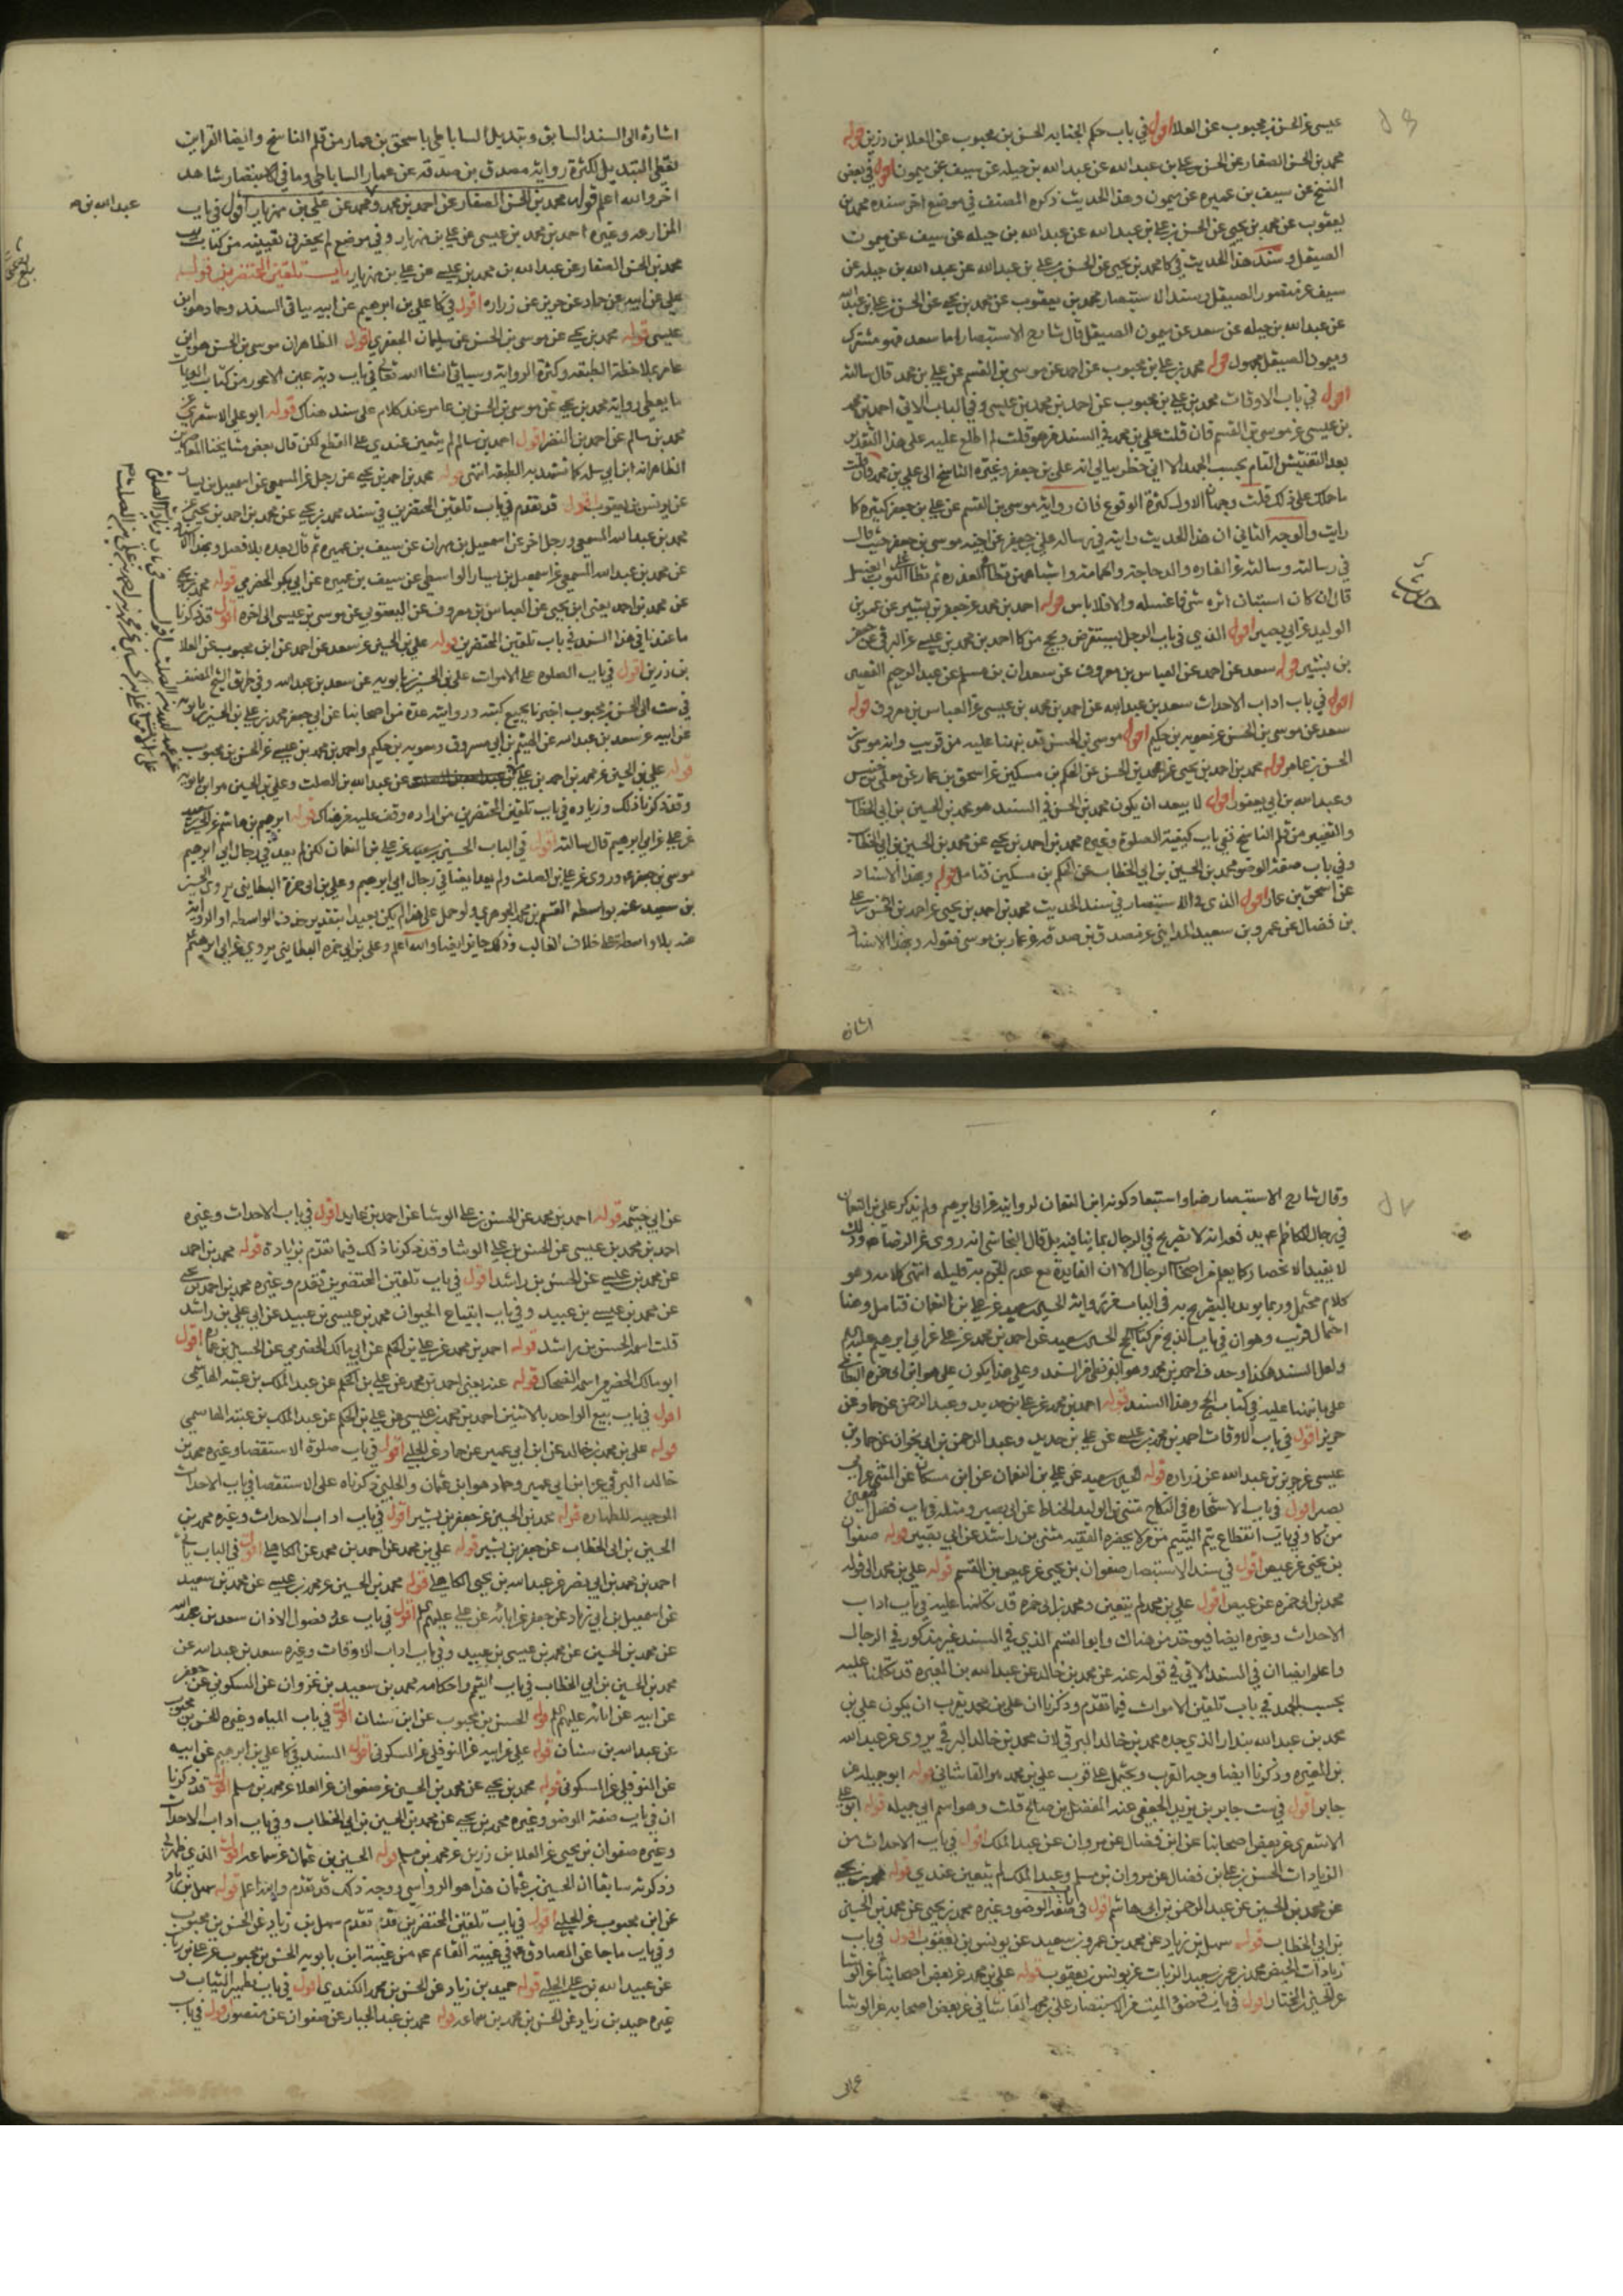 عيسى عن الحسن بن محبوب عن العلا اقول في باب حكم الجنابه الحسن بن محبوب عن العلا بن رزين قوله
محمد بن الحسن الصفار عن الحسن بن علي بن عبد الله عن عبد الله بن جبله عن سيف عن ميمون اقول في بعض
النسخ عن سيف بن عميره عن ميمون وهذا الحديث ذكره المصنف في موضع اخر سنده محمد بن
يعقوب عن محمد بن يحيى عن الحسن بن علي بن عبد الله عن عبد الله بن جبله عن سيف عن ميمون
الصيقل وسند هذا الحديث في كا محمد بن يحيى عن الحسن بن علي بن عبد الله عن عبد الله بن جبله عن
سيف عن منصور الصيقل وسند الاستبصار محمد بن يعقوب عن محمد بن يحيى عن الحسن بن علي بن عبد الله
عن عبد الله بن جبله عن سعد عن ميمون الصيقل قال شارح الاستبصار اما سعد فهو مشترك
وميمون الصيقل مجهول قوله محمد بن علي بن محبوب عن احمد عن موسى بن القسم عن علي بن محمد قال سالته
اقول في باب الاوقات محمد بن علي بن محبوب عن احمد بن محمد بن عيسى وفي الباب الاتي احمد بن محمد
بن عيسى عن موسى بن القسم فان قلت علي بن محمد في السند من هو قلت لم اطلع عليه على هذا التقدير
بعد التفتيش التام بحسب الجهد الا اني خطر ببالي انه علي بن جعفر وغيره الناسخ الى علي بن محمد فان قلت
ما حملك على ذلك قلت وجهان الاول كثرة الوقوع فان رواية موسى بن القسم عن علي بن جعفر كثيرة كا
رايت والوجه الثاني ان هذا الحديث رايته في رسالة علي بن جعفر عن اخيه موسى بن جعفر حيث قال
في رسالته وسالته عن الفاره والدجاجة والحمامة واشباههن تطأ العذره ثم تطأ الثوب ايغسل
قال ان كان استبان اثره شي فاغسله والا فلا باس قوله احمد بن محمد عن جعفر بن بشير عن عمر بن
الوليد عن ابي بصير اقول الذي في باب الرجل يستقرض ويحج من كا احمد بن محمد بن عيسى عن البرقي عن جعفر
بن بشير قوله سعد عن احمد عن العباس بن معروف عن سعدان بن مسلم عن عبد الرحيم القصير
اقول في باب اداب الاحداث سعد بن عبد الله عن احمد بن محمد بن عيسى عن العباس بن معروف قوله
سعد عن موسى بن الحسن عن معويه بن حكيم اقول موسى بن الحسن قد نبهنا عليه من قريب وانه موسى بن
الحسن بن عامر قوله محمد بن احمد بن يحيى عن محمد بن الحسن عن الحكم بن مسكين عن اسحق بن عمار عن معلى بن خنيس
وعبد الله بن ابي يعفور اقول لا يبعد ان يكون محمد بن الحسن في السند هو محمد بن الحسين بن ابي الخطاب
والتغيير من قلم الناسخ ففي باب كيفية الصلوة وغيره محمد بن احمد بن يحيى عن محمد بن الحسين بن ابي الخطاب
وفي باب صفة الوضوء محمد بن الحسين بن ابي الخطاب عن الحكم بن مسكين فتامل قوله وبهذا الاسناد
عن اسحق بن عمار اقول الذي في الاستبصار في سند الحديث محمد بن احمد بن يحيى عن احمد بن الحسن بن علي
بن فضال عن عمرو بن سعيد المدايني عن مصدق بن صدقه عن عمار بن موسى فقوله وبهذا الاسناد
اشاره
اشارة الى السند السابق وتبديل الساباطي باسحق بن عمار من قلم الناسخ وايضا القراين
تعطي التبديل لكثرة رواية مصدق بن صدقه عن عمار الساباطي وما في الاستبصار شاهد
اخر والله اعلم قوله محمد بن الحسن الصفار عن احمد بن محمد ومحمد عن علي بن مهزيار اقول في باب
المزارعه وغيره احمد بن محمد بن عيسى عن علي بن مهزيار وفي موضع لم يحضرني تعيينه من كتاب يب
عبد الله بن محمد
محمد بن الحسن الصفار عن عبد الله بن محمد بن عيسى عن علي بن مهزيار باب تلقين المحتضرين قوله
علي عن ابيه عن حماد عن حريز عن زراره اقول في كا علي بن ابرهيم عن ابيه بباقي السند وحماد هو ابن
عيسى قوله محمد بن يحيى عن موسى بن الحسن عن سليمان الجعفري اقول الظاهر ان موسى بن الحسن هو ابن
عامر بملاحظة الطبقه وكثرة الرواية وسياتي انشا الله تعالى في باب دية عين الاعور من كتاب الديات
ما يعطي رواية محمد بن يحيى عن موسى بن الحسن بن عامر عند كلام على سند هناك قوله ابو علي الاشعري عن
محمد بن سالم عن احمد بن النضر اقول احمد بن سالم لم يتعين عندي على القطع لكن قال بعض مشايخنا المعاصرين
الظاهر انه ابن ابي سلمه كما تشهد به الطبقه انتهى قوله محمد بن احمد بن يحيى عن رجل عن المسمعي عن اسمعيل بن يسار
عن يونس بن يعقوب اقول قد تقدم في باب تلقين المحتضرين في سند محمد بن يحيى عن محمد بن احمد بن يحيى عن
محمد بن عبد الله المسمعي ورجل اخر عن اسمعيل بن مهران عن سيف بن عميره ثم قال بعده بلا فصل وبهذا الاسناد
عن محمد بن عبد الله المسمعي عن اسمعيل بن يسار الواسطي عن سيف بن عميره عن ابي بكر الحضرمي قوله محمد بن يحيى
عن محمد بن احمد يعني ابن يحيى عن العباس بن معروف عن اليعقوبي عن موسى بن عيسى الى اخره اقول قد ذكرنا
ما عندنا في هذا السند في باب تلقين المحتضرين قوله علي بن الحسين عن سعد عن احمد عن ابن محبوب عن العلا
بن رزين اقول في باب الصلوه على الاموات علي بن الحسين بن بابويه عن سعد بن عبد الله وفي طرق الشيخ المصنف
في ست الى الحسن بن محبوب اخبرنا بجميع كتبه ورواياته عدة من اصحابنا عن ابي جعفر محمد بن علي بن الحسين بن بابويه
عن ابيه عن سعد بن عبد الله عن الهيثم بن ابي مسروق ومعويه بن حكيم واحمد بن محمد بن عيسى عن الحسن بن محبوب
قوله علي بن الحسين عن محمد بن احمد بن علي عن عبد الله بن الصلت وعلي بن الحسين هو ابن بابويه
وقد ذكرنا ذلك وزياده في باب تلقين المحتضرين من اراده وقف عليه من هناك قوله ابرهيم بن هاشم عن الحسين بن سعيد
عن علي عن ابي ابرهيم قال سالته اقول في الباب الحسين بن سعيد عن علي بن النعمان لكن لم يعد في رجال ابي ابرهيم
موسى بن جعفر عم وروى عن علي بن الصلت ولم يعد ايضا في رجال ابي ابرهيم وعلي بن ابي حمزة البطايني يروي الحسين
بن سعيد عنه بواسطه القسم بن محمد الجوهري ولو حمل على هذا لم يكن بعيدا بتقدير حذف الواسطه او الرواية
عنه بلا واسطة على خلاف الغالب وذلك جايز ايضا والله اعلم وعلي بن ابي حمزه البطايني يروي عن ابي ابرهيم عم
وقال شارح الاستبصار رضا واستبعاد كونه ابن النعمان لروايته عن ابي ابرهيم ولم يذكر علي بن النعمان
في رجال الكاظم عم يدفعه انه لا تصريح في الرجال بما ينافيه بل قال النجاشي انه روى عن الرضا عم وذلك
لا يفيد الانحصار كما يعلم من اصحاب الرجال الا ان الفايدة مع عدم الجزم به قليله انتهى كلامه وهو
كلام محتمل وربما يويد بالتصريح به في الباب من رواية الحسين بن سعيد عن علي بن النعمان فتامل وهنا
احتمال قريب وهو ان في باب الذبح من كتاب الحج الحسين بن سعيد عن احمد بن محمد عن علي عن ابي ابرهيم عليه السلم
ولعل السند هكذا وحذف احمد بن محمد وهو البزنطي من السند وعلى هذا يكون علي هو ابن ابي حمزه البطايني
على ما نبهنا عليه في كتاب الحج وهذا السند قوله احمد بن محمد عن علي بن حديد وعبد الرحمن عن حماد عن
حريز اقول في باب الاوقات احمد بن محمد بن عيسى عن علي بن حديد وعبد الرحمن بن ابي نجران عن حماد بن
عيسى عن حريز بن عبد الله عن زراره قوله الحسين بن سعيد عن علي بن النعمان عن ابن مسكان عن المثنى عن ابي
بصير اقول في باب الاستخاره في النكاح مثنى بن الوليد الحناط عن ابي بصير ومثله في باب فضل المعين
من كا وفي باب انقطاع يتم اليتيم من من لا يحضره الفقيه مثنى بن راشد عن ابي بصير قوله صفوان
بن يحيى عن عيص اقول في سند الاستبصار صفوان بن يحيى عن عيص بن القسم قوله علي بن محمد الى قوله
محمد بن ابي حمزه عن عيص اقول علي بن محمد لم يتعين ومحمد بن ابي حمزه قد تكلمنا عليه في باب اداب
الاحداث وغيره ايضا فيوخذ من هناك وابو القسم الذي في السند غير مذكور في الرجال
واعلم ايضا ان في السند الاتي في قوله عنه عن محمد بن خالد عن عبد الله بن المغيره قد تكلمنا عليه
بحسب الجهد في باب تلقين الاموات فيما تقدم وذكرنا ان علي بن محمد يقرب ان يكون علي بن
محمد بن عبد الله بندار الذي جده محمد بن خالد البرقي لان محمد بن خالد البرقي يروي عن عبد الله
بن المغيره وذكرنا ايضا وجه القرب ويحتمل على قرب علي بن محمد هو القاشاني قوله ابو جميله عن
جابر اقول في ست جابر بن يزيد الجعفي عنه المفضل بن صالح قلت وهو اسم ابي جميله قوله ابو علي
الاشعري عن بعض اصحابنا عن ابن فضال عن مروان عن عبد الملك اقول في باب الاحداث من
الزيادات الحسن بن علي بن فضال عن مروان بن مسلم وعبد الملك لم يتعين عندي قوله محمد بن يحيى
عن محمد بن الحسين عن عبد الرحمن بن ابي هاشم اقول في باب صفة الوضو وغيره محمد بن يحيى عن محمد بن الحسين
بن ابي الخطاب قوله سهل بن زياد عن محمد بن عمرو بن سعيد عن يونس بن يعقوب اقول في باب
زيادات الحيض محمد بن عمرو بن سعيد الزيات عن يونس بن يعقوب قوله علي بن محمد عن بعض اصحابنا عن الوشا
عن الحسن بن المختار اقول في باب من الاستبصار علي بن محمد القاشاني عن بعض اصحابه عن الوشا
عن ابي
عن ابي خيثمه قوله احمد بن محمد عن الحسن بن علي الوشا عن احمد بن عايد اقول في باب الاحداث وغيره
احمد بن محمد بن عيسى عن الحسن بن علي الوشا وقد ذكرنا ذلك فيما تقدم بزيادة قوله محمد بن احمد
عن محمد بن عيسى عن الحسن بن راشد اقول في باب تلقين المحتضرين تقدم وغيره محمد بن احمد بن يحيى
عن محمد بن عيسى بن عبيد وفي باب ابتياع الحيوان محمد بن عيسى بن عبيد عن ابي علي بن راشد
قلت اسمه الحسن بن راشد قوله احمد بن محمد عن علي بن الحكم عن ابي مالك الحضرمي عن الحسين بن عمار اقول
ابو مالك الحضرمي اسمه الضحاك قوله عنه يعني احمد بن محمد عن علي بن الحكم عن عبد الملك بن عتبه الهاشمي
اقول في باب بيع الواحد بالاثنين احمد بن محمد بن عيسى عن علي بن الحكم عن عبد الملك بن عتبه الهاشمي
قوله علي بن محمد بن خالد عن ابن ابي عمير عن حماد عن الحلبي اقول في باب صلوة الاستقصا وغيره محمد بن
خالد البرقي عن ابن ابي عمير وحماد هو ابن عثمان والحلبي ذكرناه على الاستقصا في باب الاحداث
الموجبه للطهاره قوله محمد بن الحسين عن جعفر بن بشير اقول في باب اداب الاحداث وغيره محمد بن
الحسين بن ابي الخطاب عن جعفر بن بشير قوله علي بن محمد عن احمد بن محمد عن الكاهلي اقول في الباب ياتي
احمد بن محمد بن ابي نصر عن عبد الله بن يحيى الكاهلي قوله محمد بن الحسين عن محمد بن عيسى عن محمد بن سعيد
عن اسمعيل بن ابي زياد عن جعفر عن ابائه عن علي عليهم السلم اقول في باب عدد فصول الاذان سعد بن عبد الله
عن محمد بن الحسين عن محمد بن عيسى بن عبيد وفي باب اداب الاوقات وغيره سعد بن عبد الله عن
محمد بن الحسين بن ابي الخطاب في باب التيمم واحكامه محمد بن سعيد بن غزوان عن السكوني عن جعفر
عن ابيه عن ابائه عليهم السلم قوله الحسن بن محبوب عن ابن سنان اقول في باب المياه وغيره الحسن بن محبوب
عن عبد الله بن سنان قوله علي عن ابيه عن النوفلي عن السكوني اقول السند في كا علي بن ابرهيم عن ابيه
عن النوفلي عن السكوني قوله محمد بن يحيى عن محمد بن الحسين عن صفوان عن العلا عن محمد بن مسلم اقول قد ذكرنا
ان في باب صفة الوضو وغيره محمد بن يحيى عن محمد بن الحسين بن ابي الخطاب وفي باب اداب الاحداث
وغيره صفوان بن يحيى عن العلا بن رزين عن محمد بن مسلم قوله الحسين بن عثمان عن سماعه اقول الذي ظهر لي
وذكرته سابقا ان الحسين بن عثمان هذا هو الرواسي ووجه ذلك قد تقدم والله اعلم قوله سهل بن زياد
عن ابن محبوب عن الحلبي اقول في باب تلقين المحتضرين تقدم سهل بن زياد عن الحسن بن محبوب
وفي باب ما جا عن الصادق عم في غيبة القائم عم من غيبة ابن بابويه الحسن بن محبوب عن علي بن رئاب
عن عبيد الله بن علي الحلبي قوله حميد بن زياد عن الحسن بن محمد الكندي اقول في باب تطهير الثياب و
غيره حميد بن زياد عن الحسن بن محمد بن سماعه قوله محمد بن عبد الجبار عن صفوان عن منصور اقول في باب